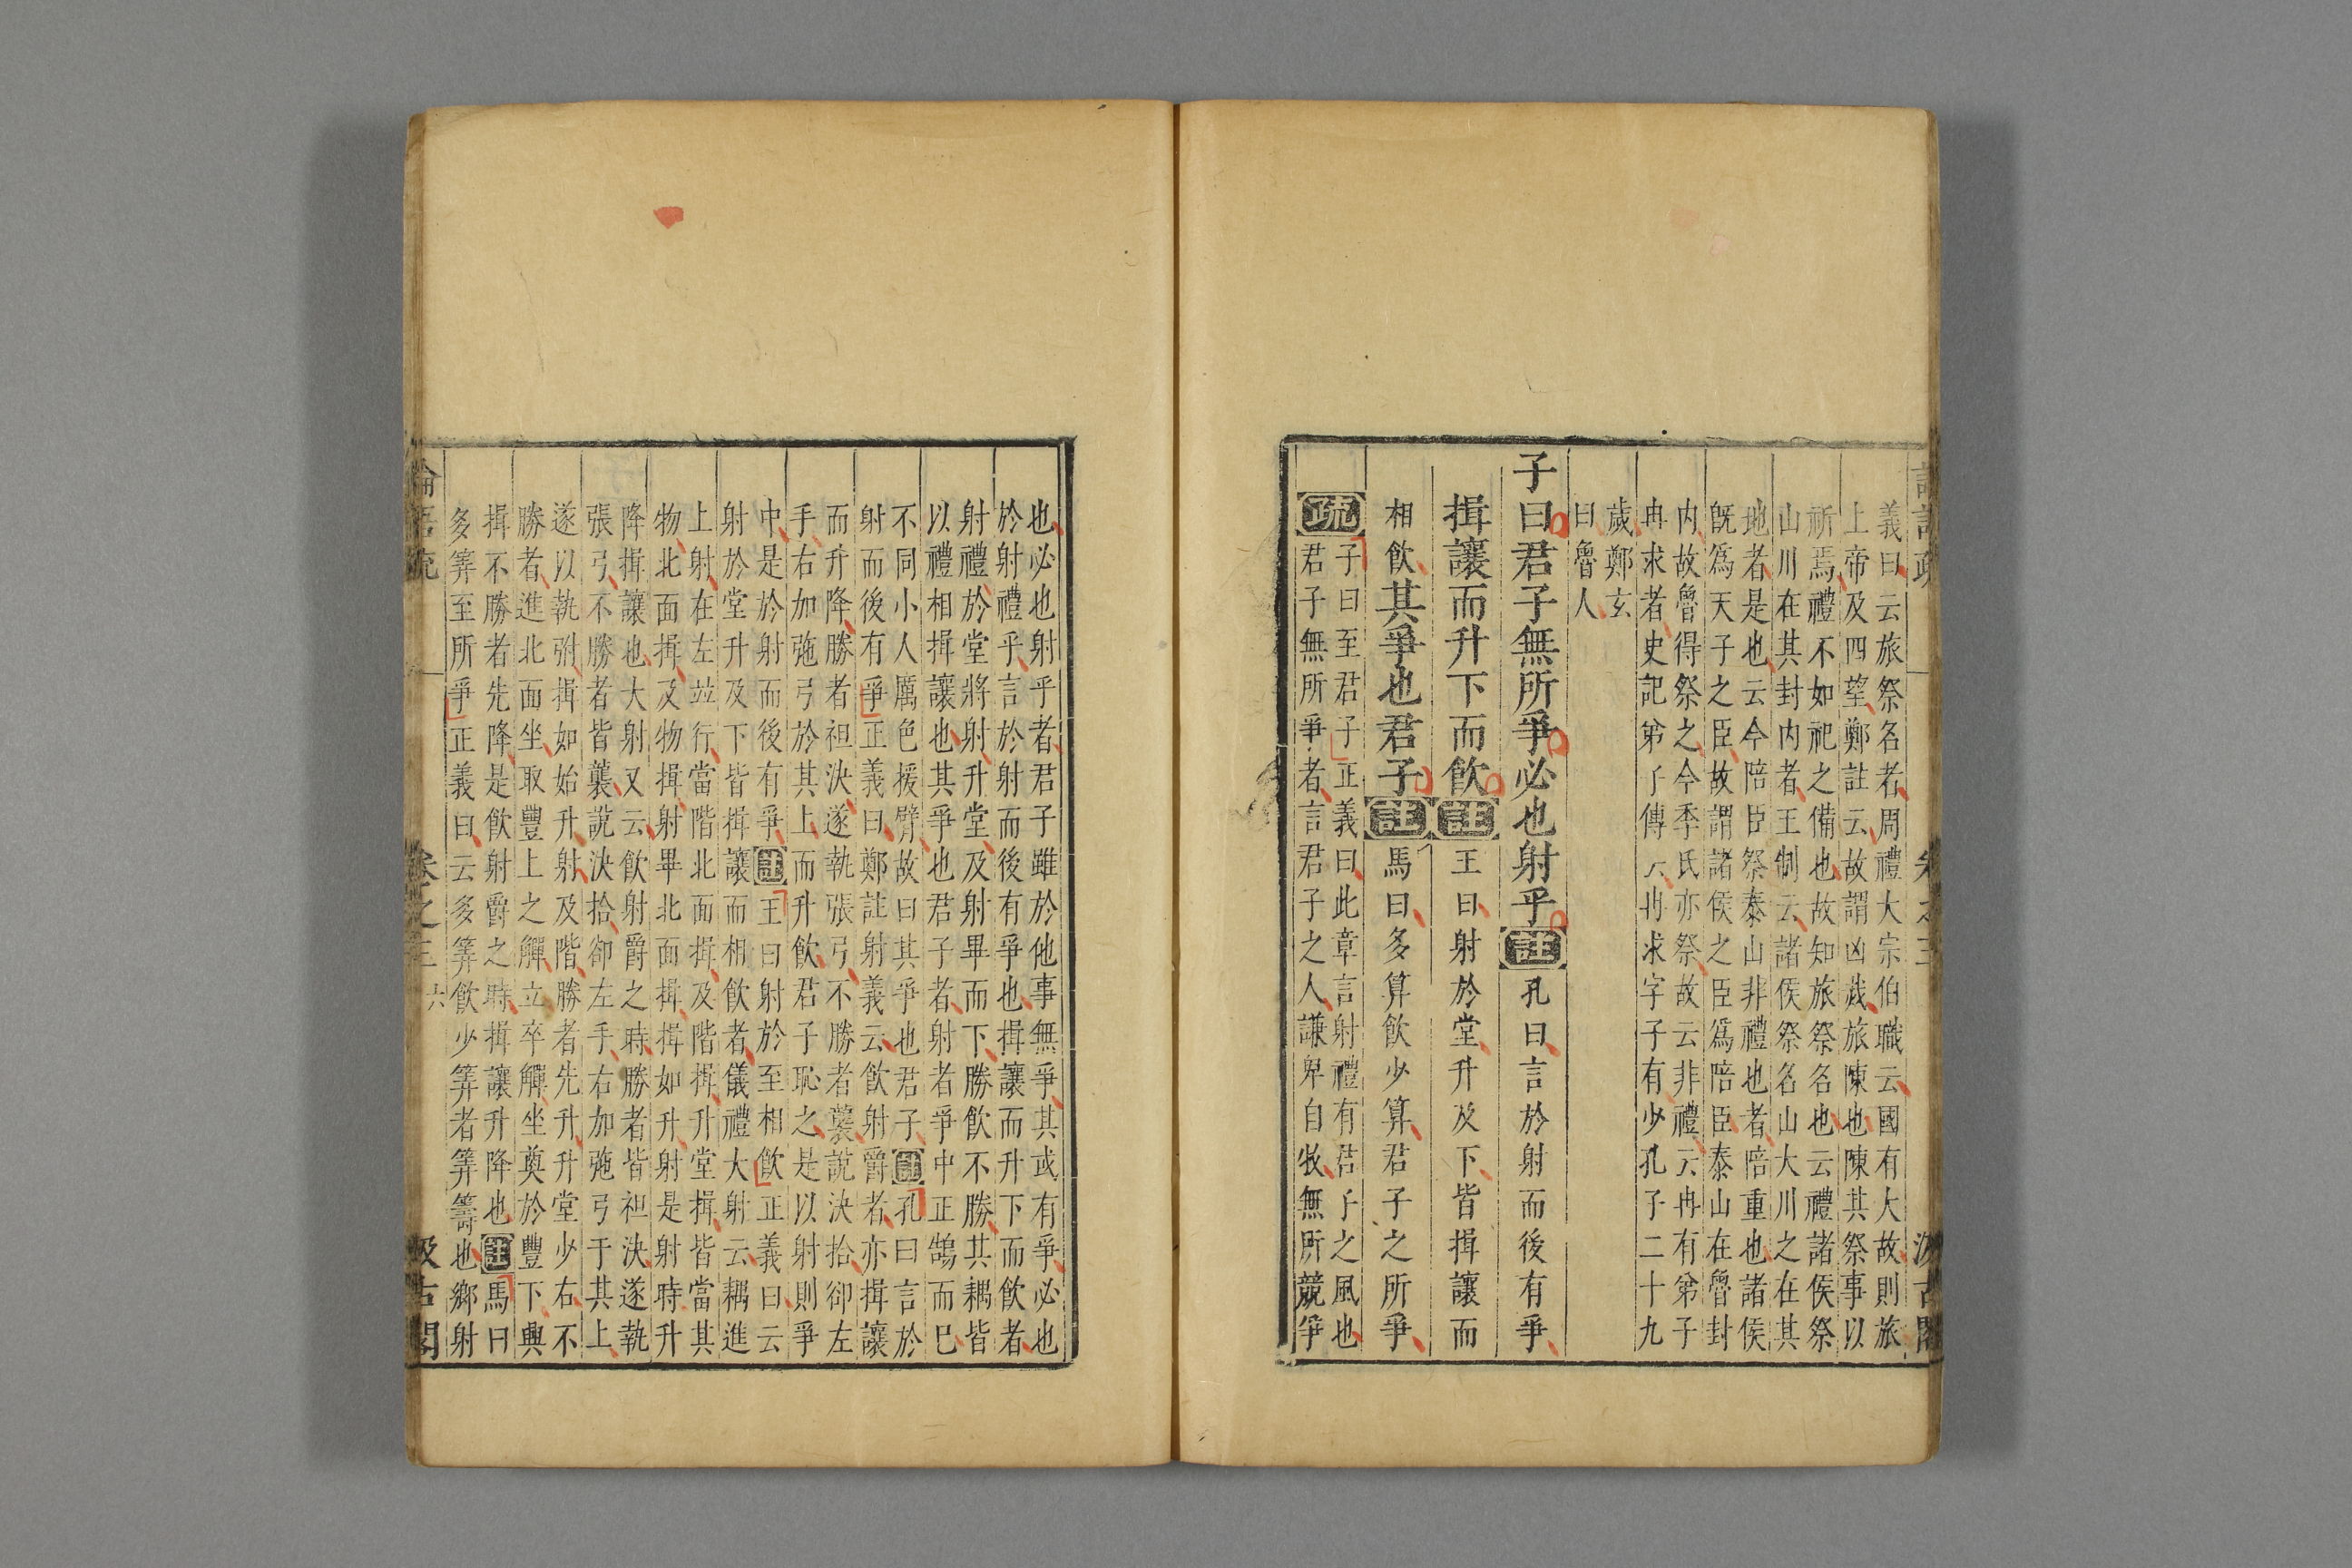 義曰云旅祭名者周禮大宗伯職云國有大故則旅
上帝及四望鄭註云故謂凶烖旅陳也陳其祭事以
祈焉禮不如祀之備也故知旅祭名也云禮諸侯祭
山川在其封内者王制云諸侯祭名山大川之在其
地者是也云今陪臣祭泰山非禮也者陪重也諸侯
旣爲天子之臣故謂諸侯之臣爲陪臣泰山在魯封
内故魯得祭之今季氏亦祭故云非禮云冉有弟子
冉求者史記弟子傳云冉求字子有少孔子二十九
歲鄭玄
曰魯人
子曰君子無所爭必也射乎註孔曰言於射而後有爭
揖讓而升下而飮註王曰射於堂升及下皆揖讓而
相飮其爭也君子註馬曰多算飮少算君子之所爭
疏
子曰至君子正義曰此章言射禮有君子之風也
君子無所爭者言君子之人謙卑自牧無所競爭
也必也射乎者君子雖於他事無爭其或有爭必也
於射禮乎言於射而後有爭也揖讓而升下而飮者
射禮於堂將射升堂及射畢而下勝飮不勝其耦皆
以禮相揖讓也其爭也君子者射者爭中正鵠而已
不同小人厲色援臂故曰其爭也君子註孔曰言於
射而後有爭正義曰鄭註射義云飮射爵者亦揖讓
而升降勝者袒決遂執張弓不勝者襲說決拾卻左
手右加弛弓於其上而升飮君子恥之是以射則爭
中是於射而後有爭註王曰射於至相飮正義曰云
射於堂升及下皆揖讓而相飮者儀禮大射云耦進
上射在左竝行當階北面揖及階揖升堂揖皆當其
物北面揖及物揖射畢北面揖揖如升射是射時升
降揖讓也大射又云飮射爵之時勝者皆袒決遂執
張弓不勝者皆襲說決拾卻左手右加弛弓于其上
遂以執弣揖如始升射及階勝者先升升堂少右不
勝者進北面坐取豐上之觶立卒觶坐奠於豐下興
揖不勝者先降是飮射爵之時揖讓升降也註馬曰
多筭至所爭正義曰云多筭飮少筭者筭籌也鄉射
論語疏
卷之三
六
汲古閣